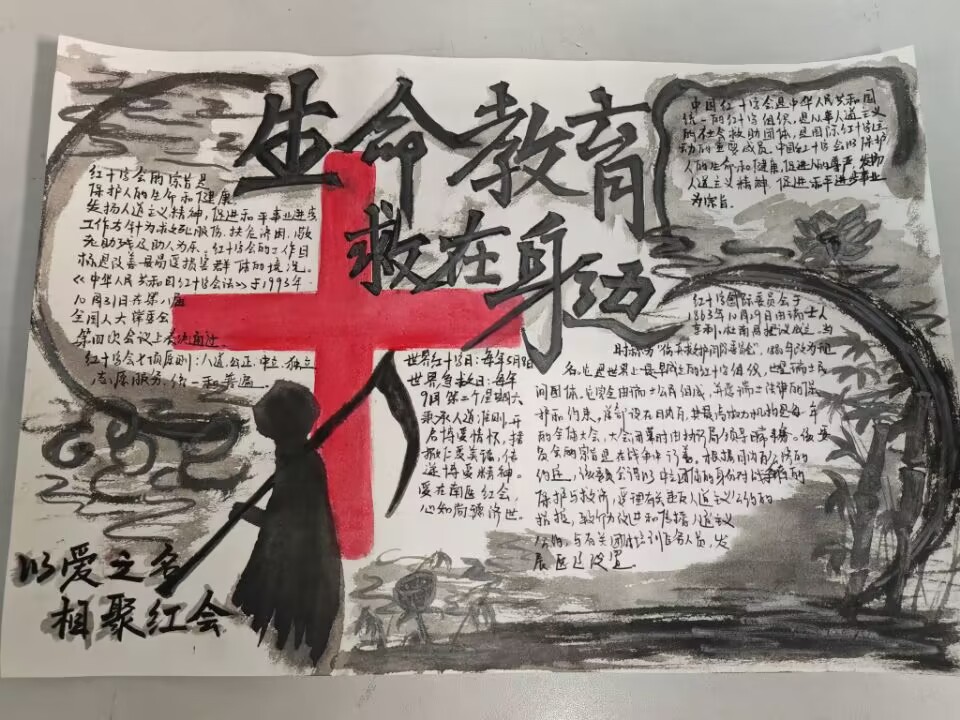 生命教育
救在身边
红十字会的宗旨是
保护人的生命和健康。
发扬人道主义精神，促进和平事业进步
工作方针为救死扶伤，扶危济困，敬
老助残及助人为乐。红十字会的工作目
标是改善最易受损害群体的境况。
《中华人民共和国红十字会法》于1993年
10月31日在第八届
全国人大常委会
第四次会议上表决通过
红十字会七项原则：人道、公正、中立、独立
志愿服务、统一和普遍
中国红十字会是中华人民共和国
统一的红十字组织，是从事人道主义
的社会救助团体，是国际红十字运
动的重要成员。中国红十字会以保护
人的生命和健康，促进人的尊严，发扬
人道主义精神，促进和平进步事业
为宗旨。
世界红十字日：每年5月8日
世界急救日：每年
9月第二个星期六
秉承人道准则，开
启博爱情怀，播
撒仁爱美诺，传
递博爱精神。
爱在南医红会，
心知尚德济世
红十字国际委员会于
1863年10月29日由瑞士人
亨利·杜南倡议成立，当
时称为"伤兵救护国际委员会"，1880年改为现
名，它是世界上最早成立的红十字组织，也是瑞士民
间团体，它完全由瑞士公民组成，并受瑞士法律的保
护和约束，总部设在日内瓦，其最高权力机构是每年
的全体大会，大会闭幕时由执行局领导日常事务。该委
员会的宗旨是在战争中行善，根据日内瓦公约的
约定，该委员会得以中立团体的身份对战争的
保护与救济，受理有关违反人道主义公约的
指控，致力促进和传播人道主义
公约，与有关团体培训医务人员，发
展医疗设置
以爱之名
相聚红会